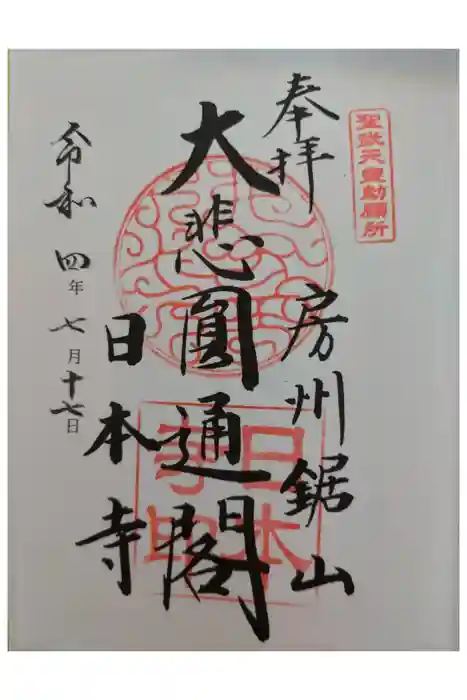 聖武天皇勅願所
奉拝
房州鋸山
大悲圓通閣
日本寺
令和四年七月十七日